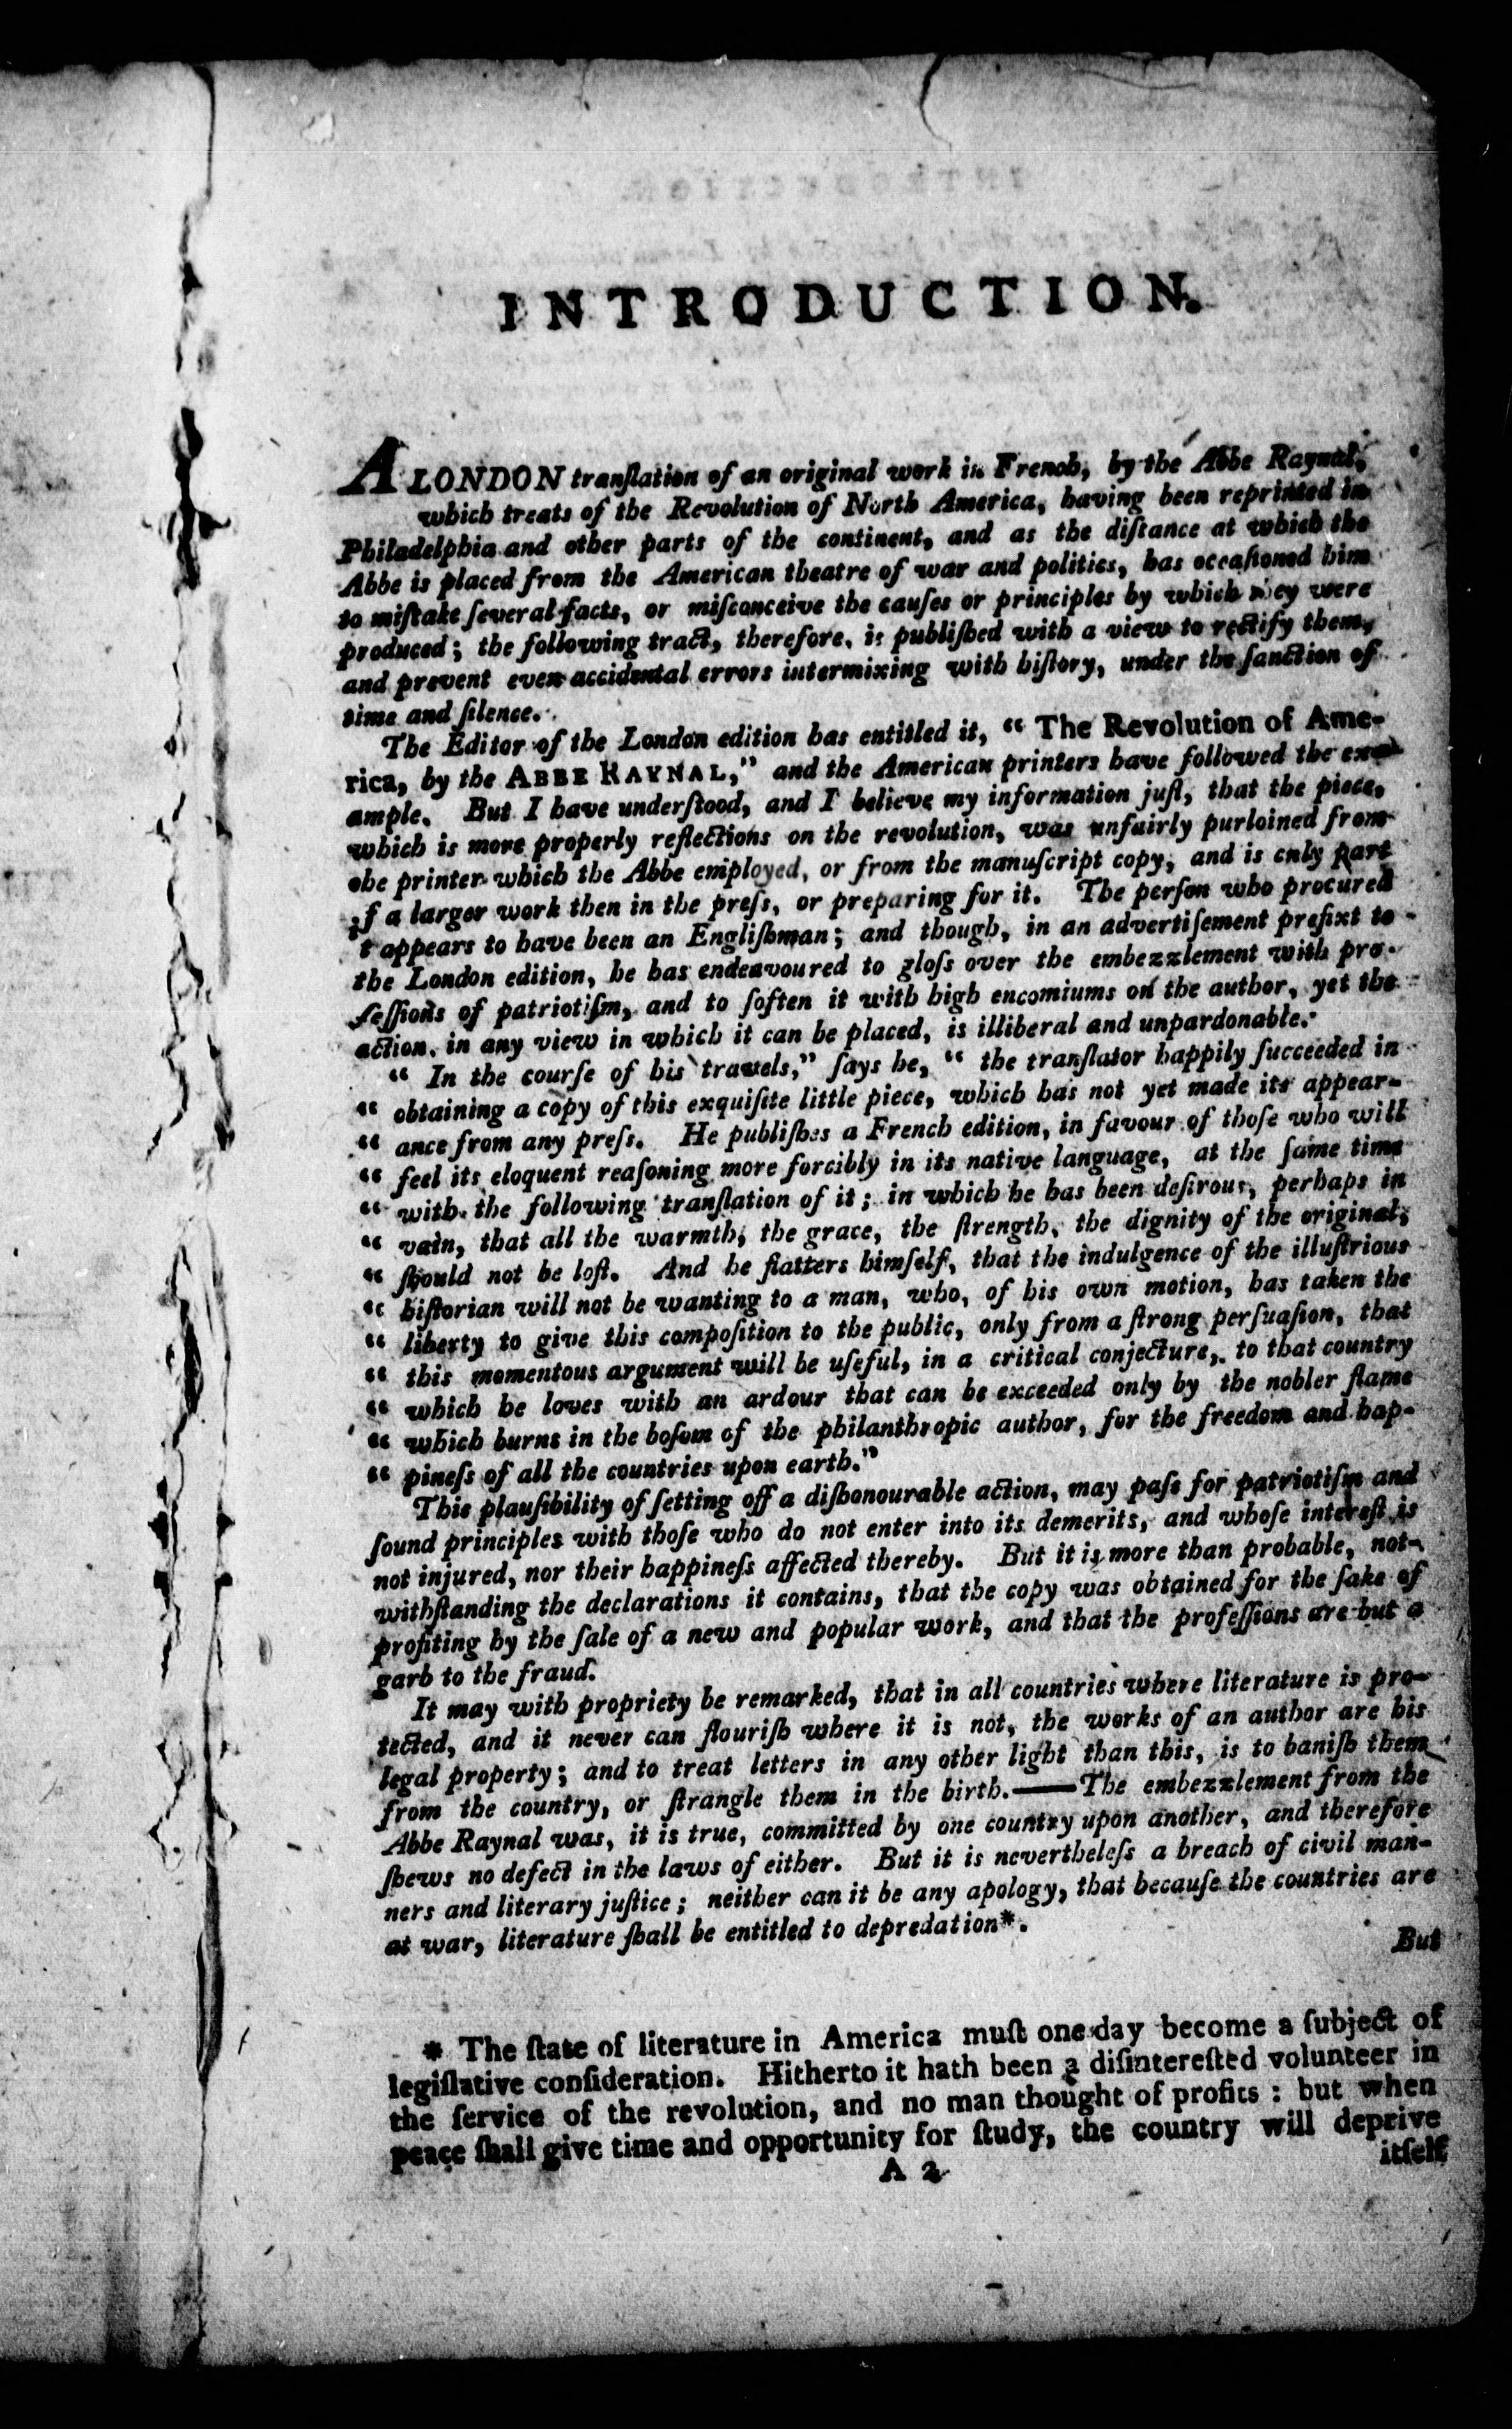 INTRODUCTION.
A LONDON tranſlation of an original work in French, by the Abbe Raynal,
which treats of the Revolution of North America, having been reprinted in
Philadelphia and other parts of the continent, and as the diſtance at which the
Abbe is placed from the American theatre of war and politics, has occaſioned him
to miſtake ſeveral facts, or miſconceive the cauſes or principles by which they were
produced; the following tract, therefore, is publiſhed with a view to rectify them,
and prevent even accidental errors intermixing with hiſtory, under the ſanction of
time and ſilence.
The Editor of the London edition has entitled it, “ The Revolution of Ame-
rica, by the ABBE RAYNAL,” and the American printers have followed the ex-
ample. But I have underſtood, and I believe my information juſt, that the piece,
which is more properly reflections on the revolution, was unfairly purloined from
the printer which the Abbe employed, or from the manuſcript copy, and is only part
of a larger work then in the preſs, or preparing for it. The perſon who procured
't appears to have been an Engliſhman; and though, in an advertiſement prefixt to
the London edition, he has endeavoured to gloſs over the embezzlement with pro-
feſſions of patriotiſm, and to ſoften it with high encomiums on the author, yet the
action, in any view in which it can be placed, is illiberal and unpardonable.
“ In the courſe of his travels,” ſays he, “ the tranſlator happily ſucceeded in
“ obtaining a copy of this exquiſite little piece, which has not yet made its appear-
“ ance from any preſs. He publiſhes a French edition, in favour of thoſe who will
“ feel its eloquent reaſoning more forcibly in its native language, at the ſame time
“ with the following tranſlation of it; in which he has been deſirous, perhaps in
“ vain, that all the warmth, the grace, the ſtrength, the dignity of the original,
“ ſhould not be loſt. And he flatters himſelf, that the indulgence of the illuſtrious
“ hiſtorian will not be wanting to a man, who, of his own motion, has taken the
“ liberty to give this compoſition to the public, only from a ſtrong perſuaſion, that
“ this momentous argument will be uſeful, in a critical conjecture, to that country
“ which he loves with an ardour that can be exceeded only by the nobler flame
“ which burns in the boſom of the philanthropic author, for the freedom and hap-
“ pineſs of all the countries upon earth.”
This plauſibility of ſetting off a diſhonourable action, may paſs for patriotiſm and
ſound principles with thoſe who do not enter into its demerits, and whoſe intereſt is
not injured, nor their happineſs affected thereby. But it is more than probable, not-
withſtanding the declarations it contains, that the copy was obtained for the ſake of
profiting by the ſale of a new and popular work, and that the profeſſions are but a
garb to the fraud.
It may with propriety be remarked, that in all countries where literature is pro-
tected, and it never can flouriſh where it is not, the works of an author are his
legal property; and to treat letters in any other light than this, is to baniſh them
from the country, or ſtrangle them in the birth.——The embezzlement from the
Abbe Raynal was, it is true, committed by one country upon another, and therefore
ſhews no defect in the laws of either. But it is nevertheleſs a breach of civil man-
ners and literary juſtice; neither can it be any apology, that becauſe the countries are
at war, literature ſhall be entitled to depredation*.
But
* The ſtate of literature in America muſt one day become a ſubject of
legiſlative conſideration. Hitherto it hath been a diſintereſted volunteer in
the ſervice of the revolution, and no man thought of profits : but when
peace ſhall give time and opportunity for ſtudy, the country will deprive
A 2
itſelf